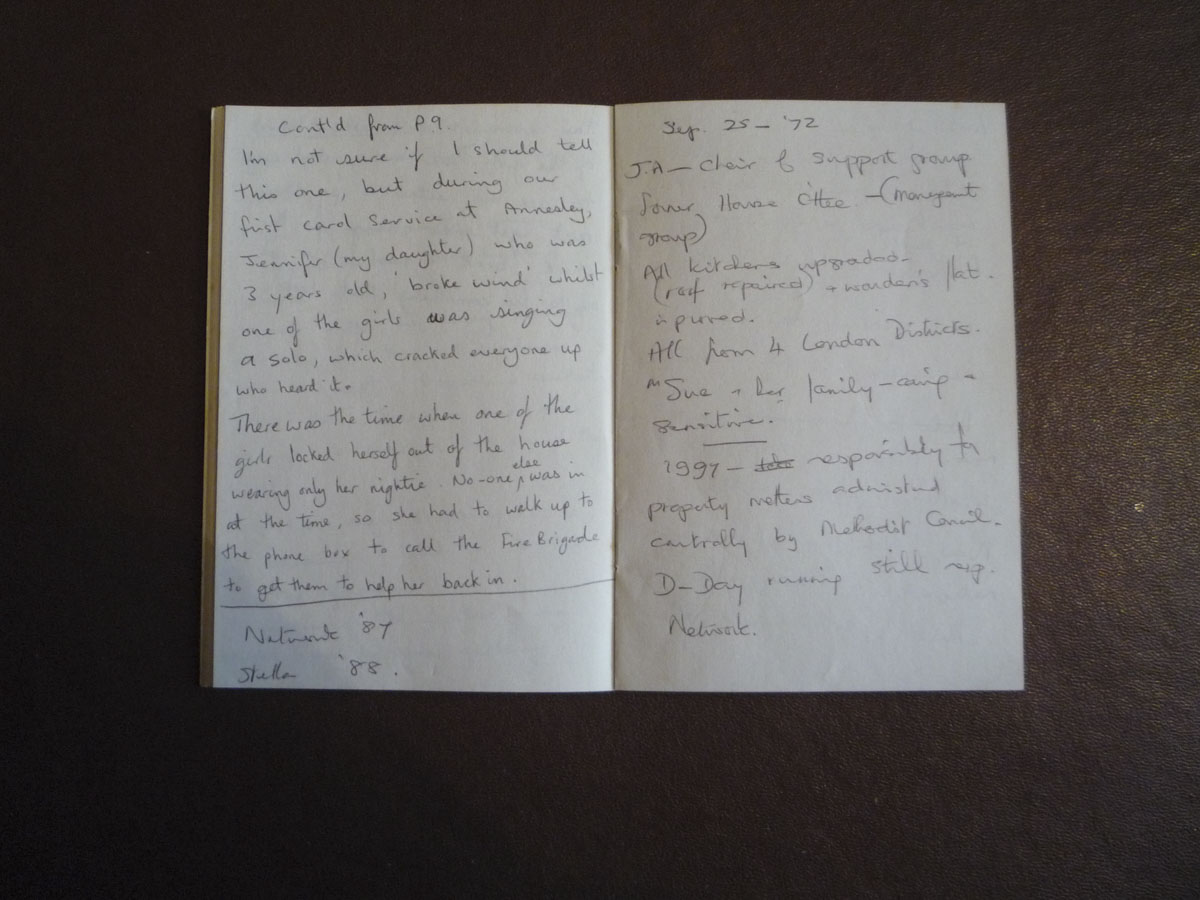 Cont'd from P9.
I'm not sure if I should tell
this one, but during our
first carol service at Annesley,
Jennifer (my daughter) who was
3 years old, 'broke wind' whilst
one of the girls was singing
a solo, which cracked everyone up
who heard it.
There was the time when one of the
girls locked herself out of the house
wearing only her nightie. No-one else was in
at the time, so she had to walk up to
the phone box to call the Fire Brigade
to get them to help her back in.
Network '87
Stella '88.
Sep. 25 - '72
J.A - Chair of support group
former House C'ttee - (Management
group)
All kitchens upgraded -
(roof repaired) + warden's flat
improved.
All from 4 London Districts.
Sue + her family - caring +
sensitive.
1997 - responsibly for
property matters administered
centrally by Methodist Council.
D-Day running still resp.
Network.